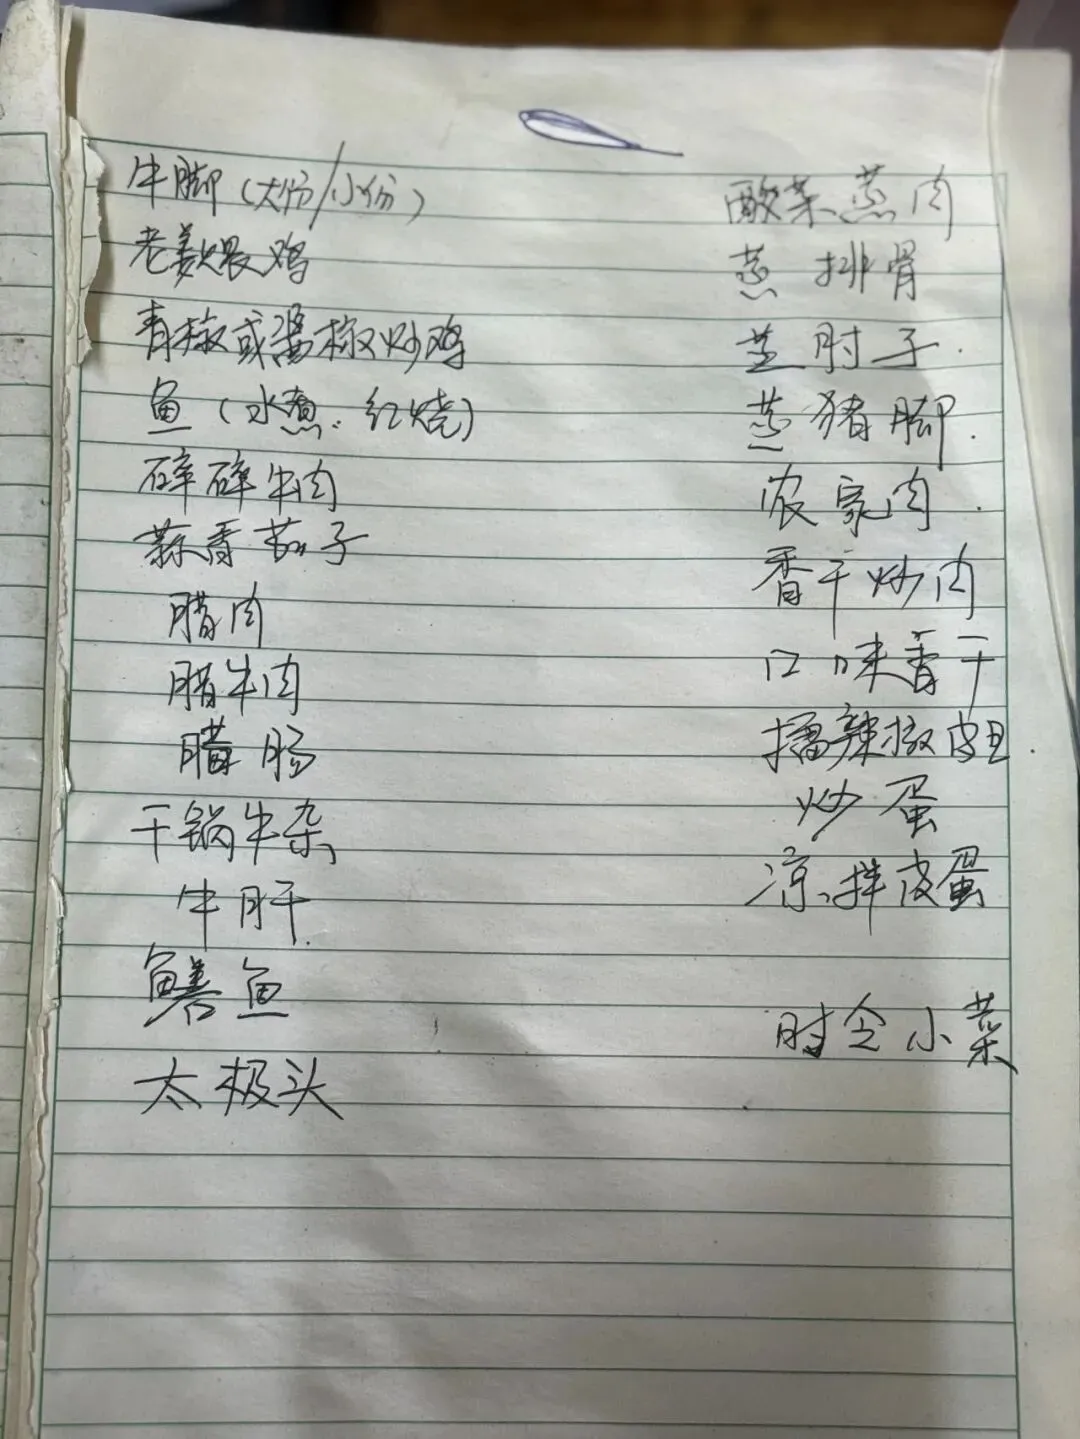 牛脚（大份/小份）
老姜煨鸡
青椒或酱椒炒鸡
鱼（水煮.红烧）
碎碎牛肉
蒜香茄子
腊肉
腊牛肉
腊肠
干锅牛杂
牛肝
鳝鱼
太极头
酸菜蒸肉
蒸排骨
蒸肘子.
蒸猪脚.
农家肉.
香干炒肉
口味香干
擂辣椒皮旦.
炒蛋
凉拌皮蛋
时令小菜